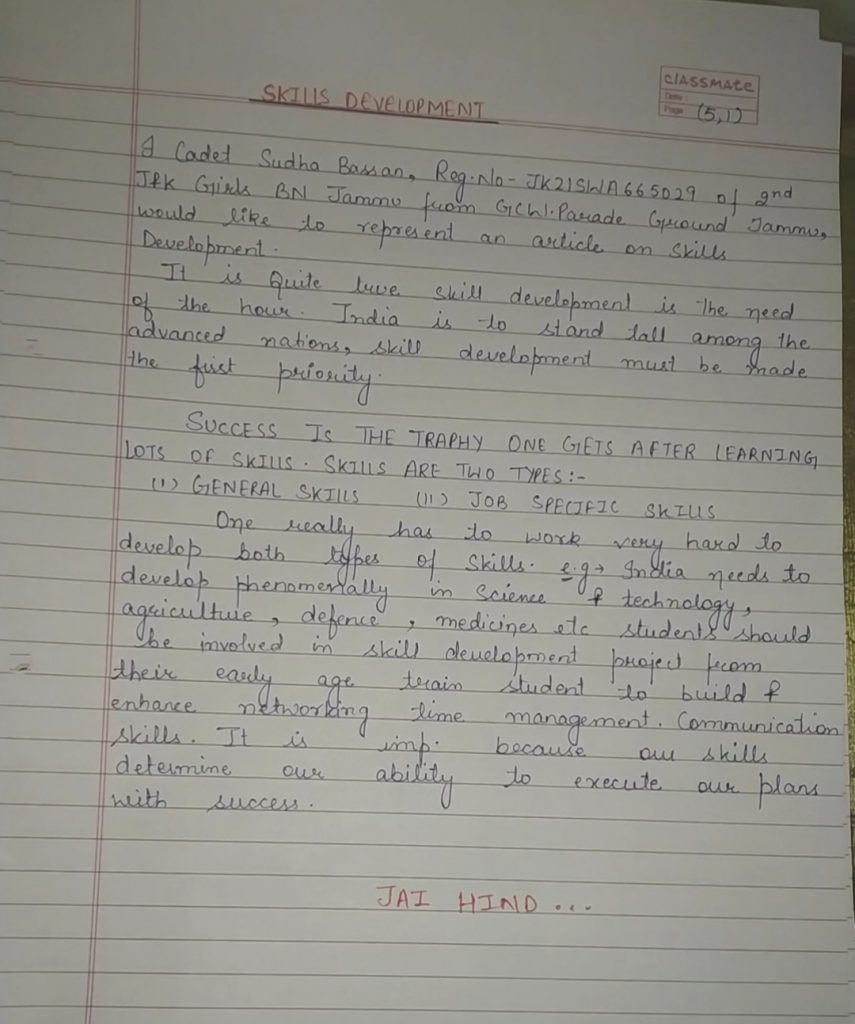 SKILLS DEVELOPMENT
classmate
Date :
Page : (5,1)
I Cadet Sudha Bassan, Reg.No - JK21SWA665029 of 2nd
J&k Girls BN Jammu from GCW.Parade Ground Jammu,
would like to represent an article on skills
Development.
It is Quite true skill development is the need
of the hour. India is to stand tall among the
advanced nations, skill development must be made
the first priority.
SUCCESS IS THE TRAPHY ONE GETS AFTER LEARNING
LOTS OF SKILLS. SKILLS ARE TWO TYPES:-
(I) GENERAL SKILLS (II) JOB SPECIFIC SKILLS
One really has to work very hard to
develop both types of skills. e.g→ India needs to
develop phenomenally in Science & technology,
agriculture, defence, medicines etc students should
be involved in skill development project from
their early age train student to build &
enhance networking time management. Communication
skills. It is imp. because our skills
determine our ability to execute our plans
with success.
JAI HIND ...